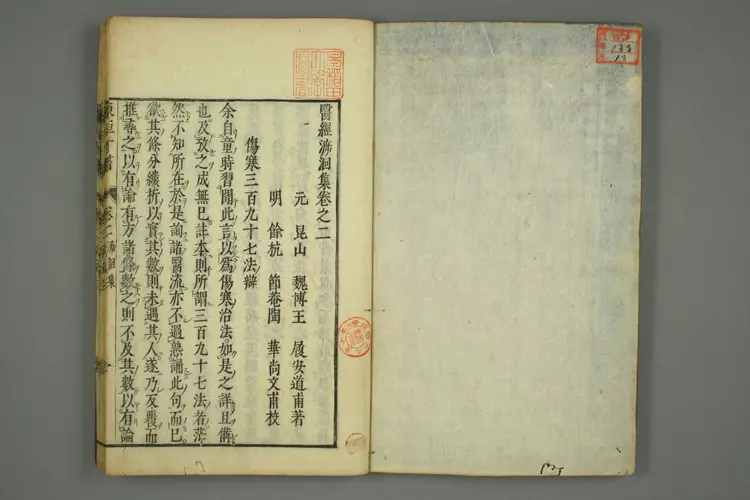 醫經溯洄集卷之二
元 昆山 魏博王 履安道甫著
明 餘杭 節菴陶 華尚文甫校
傷寒三百九十七法辯
余自童時習聞此言以為傷寒治法如是之詳且備
也及攷之成無巳註本則所謂三百九十七法者茫
然不知所在於是詢諸醫流亦不過熟誦此句而巳
欲其條分縷析以實其數則未遇其人遂乃反覆而
推尋之以有論有方諸條數之則不及其數以有論